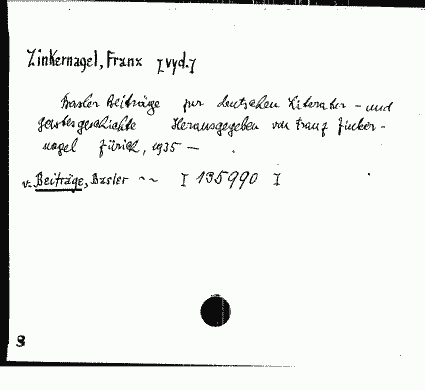 Zinkernagel, Franz [vyd.]
Basler Beiträge zur deutschen Literatur- und
Geistesgeschichte Herausgegeben von Franz Zinker-
nagel Zürich, 1935 —
v. Beiträge, Basler ~~ [ 135990 ]
8